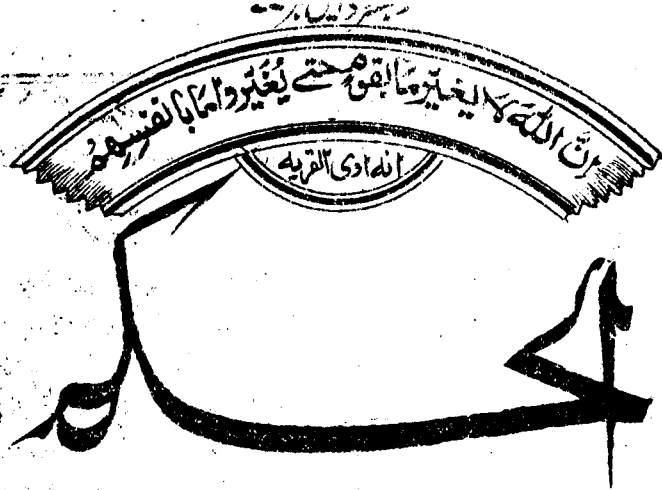 اِنَّ اللّٰهَ لَا يُغَيِّرُ مَا بِقَوْمٍ حَتّٰے يُغَيِّرُوْا مَا بِاَنْفُسِهِمْ
انه اوى القريه
الحکم